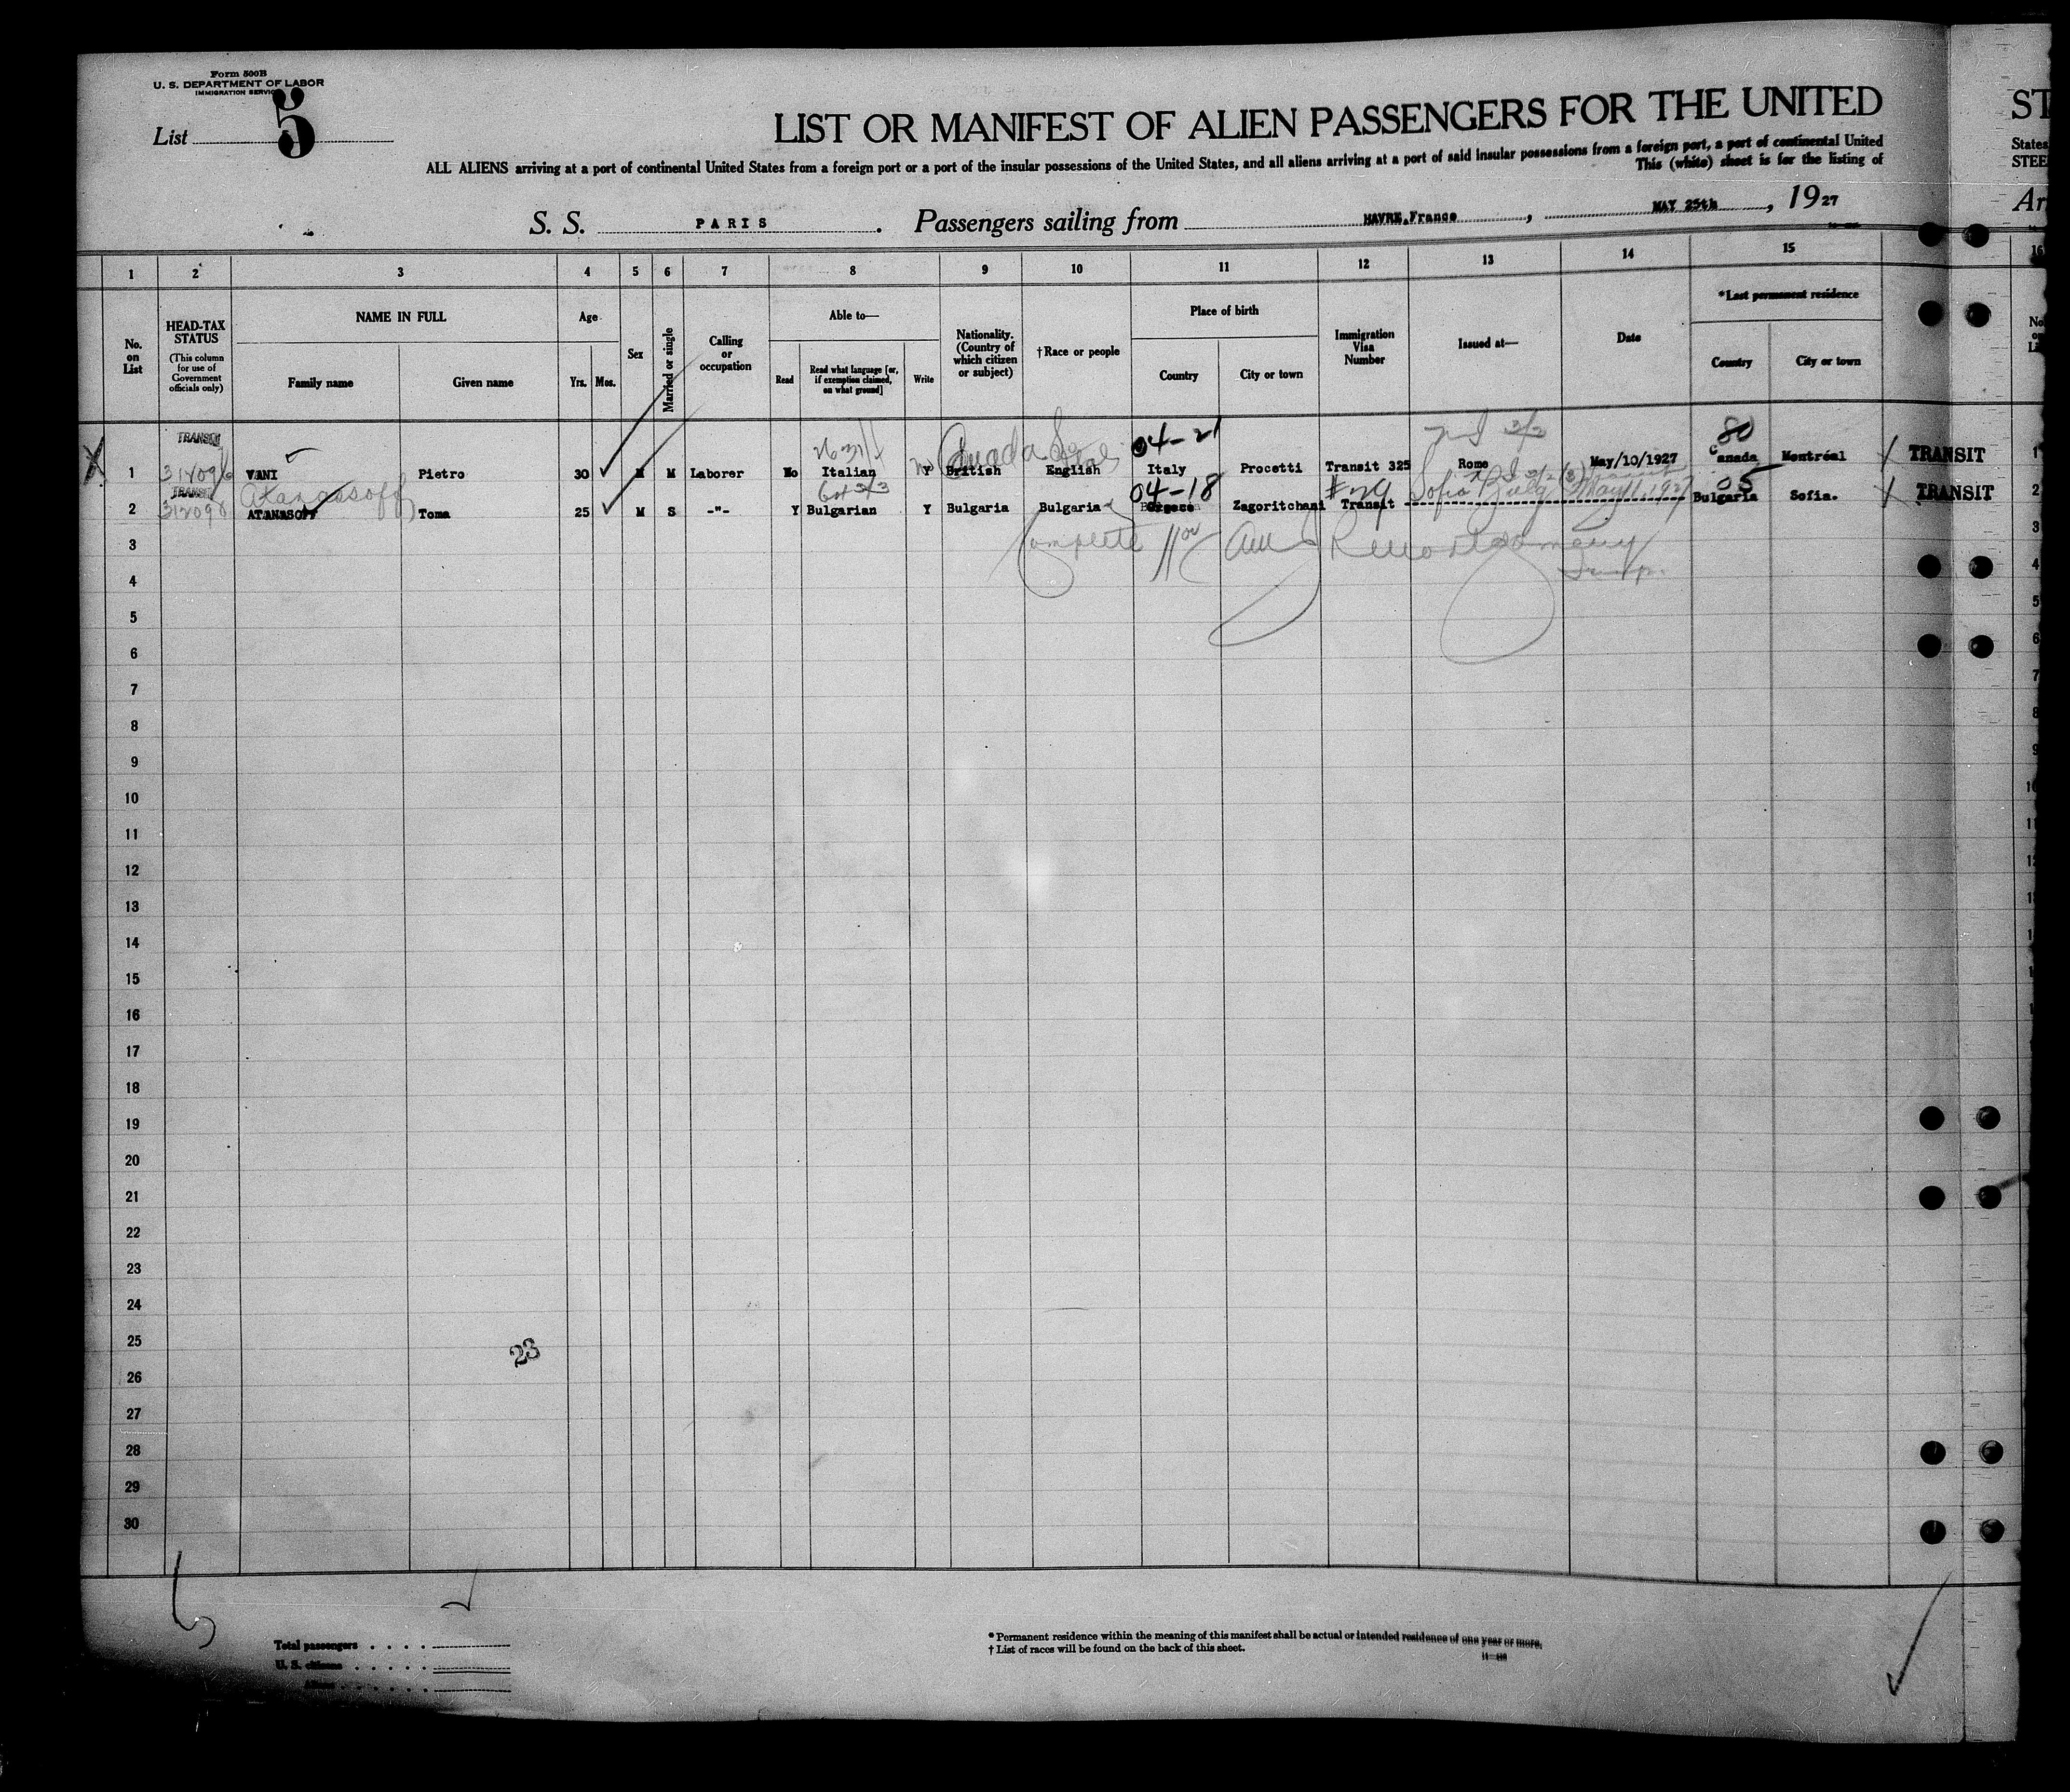 Form 500B
U. S. DEPARTMENT OF LABOR
IMMIGRATION SERVICE
List 5
LIST OR MANIFEST OF ALIEN PASSENGERS FOR THE UNITED ST
ALL ALIENS arriving at a port of continental United States from a foreign port or a port of the insular possessions of the United States, and all aliens arriving at a port of said insular possessions from a foreign port, a port of continental United States
This (white) sheet is for the listing of STEE
S. S. PARIS . Passengers sailing from HAVRE, France , MAY 25th , 1927 Ar
1 2 3 4 5 6 7 8 9 10 11 12 13 14 15 16
No. on List
HEAD-TAX STATUS
(This column for use of Government officials only)
NAME IN FULL
Family name Given name
Age
Yrs. Mos.
Sex
Married or single
Calling or occupation
Able to—
Read Read what language [or, if exemption claimed, on what ground] Write
Nationality. (Country of which citizen or subject)
†Race or people
Place of birth
Country City or town
Immigration Visa Number
Issued at—
Date
*Last permanent residence
Country City or town
TRANSIT 04-21 80
1 VANI Pietro 30 M M Laborer No Italian Y British English Italy Procetti Transit 325 Rome May/10/1927 Canada Montréal TRANSIT 1
TRANSIT Atanasoff 04-18 #29 Sofia Bulg May 11, 1927 05
2 ATANASOFF Toma 25 M S -"- Y Bulgarian Y Bulgaria Bulgaria Greece Zagoritchani Transit Bulgaria Sofia. TRANSIT 2
3 Complete 3
4 4
5 5
6 6
7 7
8 8
9 9
10
11
12
13
14
15
16
17
18
19
20
21
22
23
24
25
23
26
27
28
29
30
Total passengers
U. S. citizens
Aliens
* Permanent residence within the meaning of this manifest shall be actual or intended residence of one year or more.
† List of races will be found on the back of this sheet.